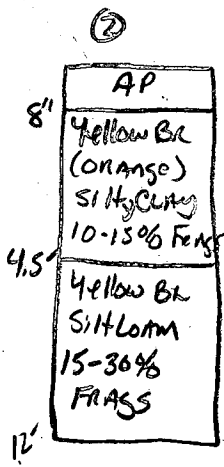 2
AP
8"
Yellow BR
(ORANGE)
Silty Clay
10-15% FRAGS
4.5'
Yellow BR
Silt Loam
15-30%
FRAGS
12'